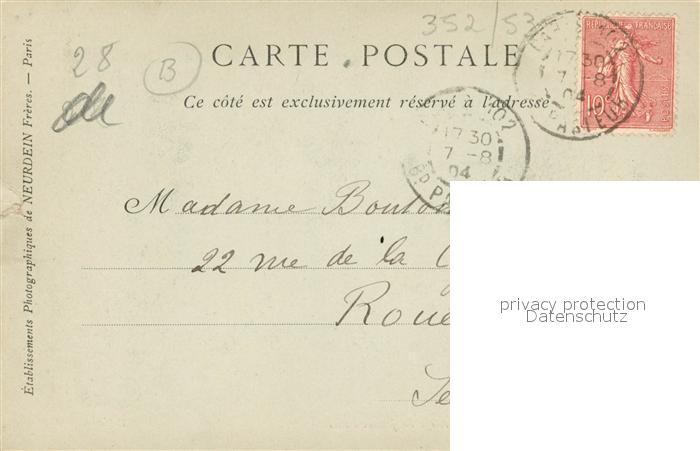 352/53
28
B
CARTE POSTALE
Ce côté est exclusivement réservé à l'adresse
RÉPUBLIQUE FRANÇAISE
10
POSTES
17 30
7 -8
04
PASTEUR
17 30
7 -8
04
BD P
Madame Bouto
22 rue de la
Roue
Se
privacy protection
Datenschutz
Établissements Photographiques de NEURDEIN Frères. — Paris